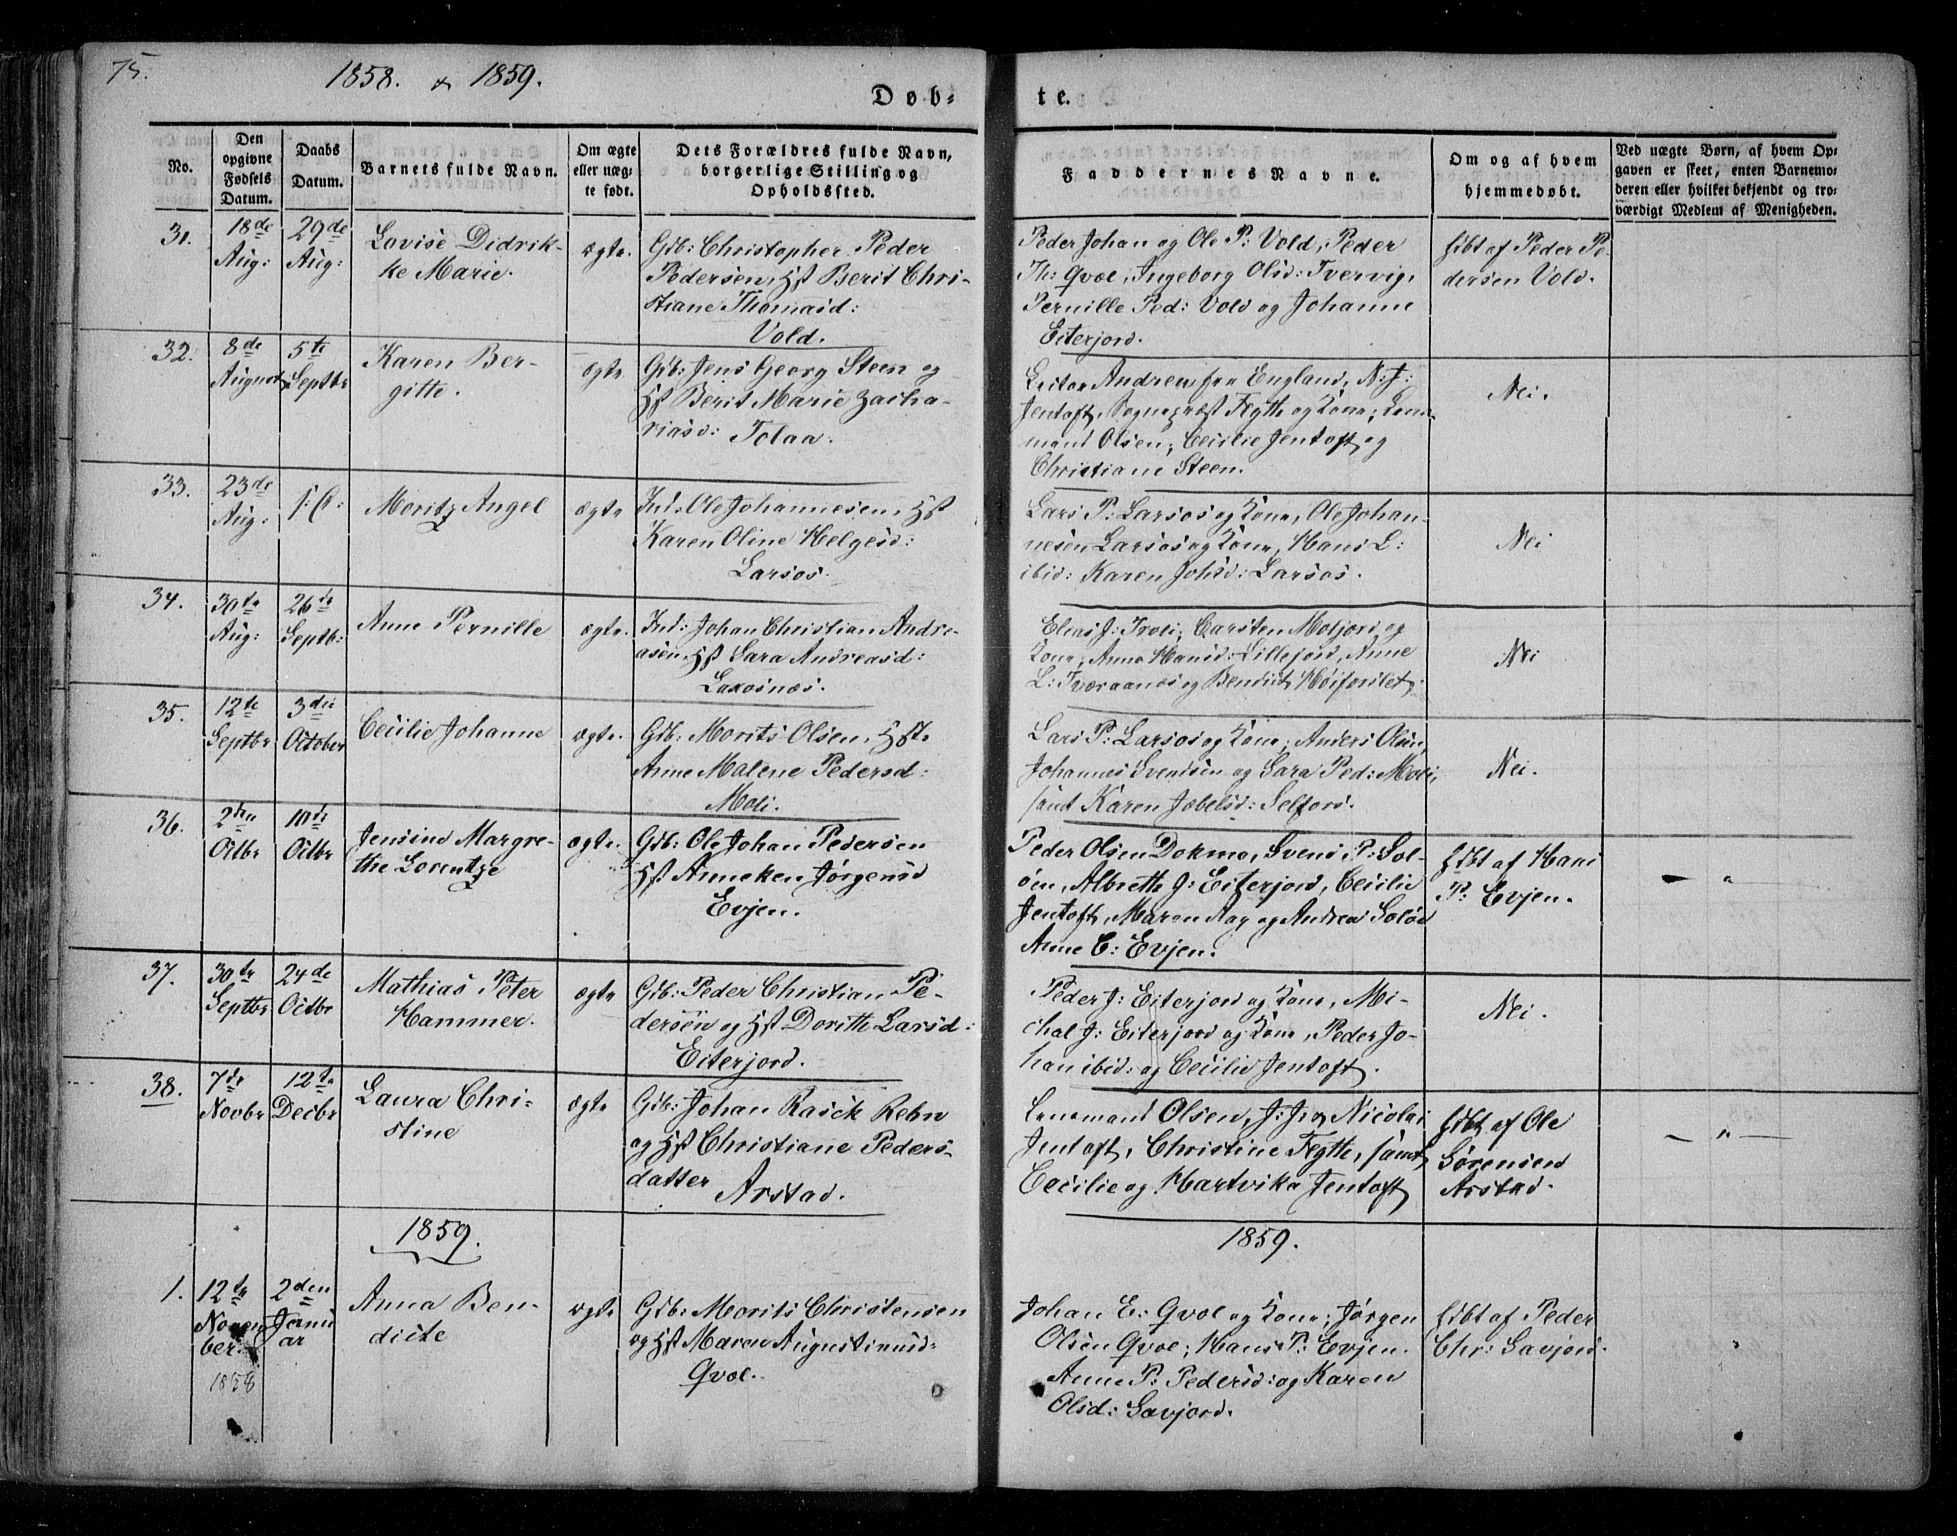 75.
1858. & 1859.
Døb-
te.
No.
Den
opgivne
Fødsels
Datum.
Daabs
Datum.
Barnets fulde Navn.
Om ægte
eller uæg-
te født.
Dets Forældres fulde Navn,
borgerlige Stilling og
Opholdsted.
Faddernes Navne.
Om og af hvem
hjemmedøbt.
Ved uægte Børn, af hvem Op-
gaven er skeet, enten Barnemo-
deren eller hvilket bekjendt og tro-
værdigt Medlem af Menigheden.
31.
18de
Aug:
29de
Aug:
Lovise Didrik-
ke Marie.
ægte.
Gdb: Christopher Peder
Pedersen, Hst Berit Chri-
stiane Thomasd:
Vold.
Peder Johan og Ole P: Vold, Peder
Th: Qvæl, Ingeborg Olsd: Tvervig,
Pernille Ped: Vold og Johanne
Eiterjord.
hdbt af Peder Pe-
dersen Vold.
32.
8de
August
5te
Septbr
Karen Ber-
gitte.
ægte
Gdb: Jens Georg Steen og
Hst Berit Marie Zacha-
riasd: Tolaa.
Andrew fra England, N: J:
Jentoft, Sognepræst Flytte og Kone, Lens-
mand Olsen, Cecilie Jentoft og
Christiane Steen.
Nei.
33.
23de
Aug:
s: D:
Moritz Angel
ægte
Ind: Ole Johannesen, Hst
Karen Oline Helgesd:
Larsos.
Lars P: Larsos og Kone, Ole Johan-
nesen Larsos og Kone, Hans L:
ibid: Karen Johsd: Larsos.
Nei
34.
30te
Aug:
26de
Septb:
Anne Pernille
ægte.
Ind: Johan Christian Andre-
asen, Hst Sara Andreasd:
Laxosnæs.
Elias J: Troli, Carsten Moljord og
Kone, Anne Hansd: Lillejord, Anne
L: Tveraanes og Bendict Høiforslet.
Nei
35.
12te
Septbr
3die
October
Cecilie Johanne
ægte.
Gdb: Morits Olsen, Hst.
Anne Malene Pedersd:
Moli.
Lars P: Larsos og Kone, Anders Olsen,
Johannes Svendsen og Sara Ped: Moli,
samt Karen Jæbelsd: Selfors.
Nei.
36.
2den
Octbr
10de
Octbr
Jensine Margre-
the Lorentze
ægte.
Gdb: Ole Johan Pedersen
Hst Anneken Jørgensd
Evjen.
Peder Olsen Dokmo, Svend P: Sol-
øen, Albrette J: Eiterjord, Cecilie
Jentoft, Maren Aag og Andrea Soløen
Anne C: Evjen.
hdbt af Hans
P: Evjen.
— " —
37.
30te
Septbr
24de
Octbr
Mathias Peter
Hammer.
ægte
Gdb: Peder Christian Pe-
dersen og Hst Dorithe Larsd:
Eiterjord.
Peder J: Eiterjord og Kone, Mi-
chal J: Eiterjord og Kone, Peder Jo-
han ibid: og Cecilie Jentoft.
Nei.
38.
7de
Novbr
12te
Decbr
Laura Chri-
stine
ægte
Gdb: Johan Rasck Rehn
og Hst Christiane Peders-
datter Arstad.
Lensmand Olsen, J: J: og Nicolai
Jentoft, Christine Flytte, samt
Cecilie og Hartvika Jentoft
hdbt af Ole
Sørensen
Arstad.
— " —
1859.
1859.
1.
12te
Novem
ber.
1858
2den
Janu
ar
Anna Ben-
dicte
ægte
Gdb: Morits Christensen
og Hst Maren Augustinusd:
Qvæl.
Johan E: Qvæl og Kone, Jørgen
Olsen Qvæl, Hans P: Evjen.
Anne P: Pedersd: og Karen
Olsd: Savjord.
hdbt af Peder
Chr: Savjord.
"